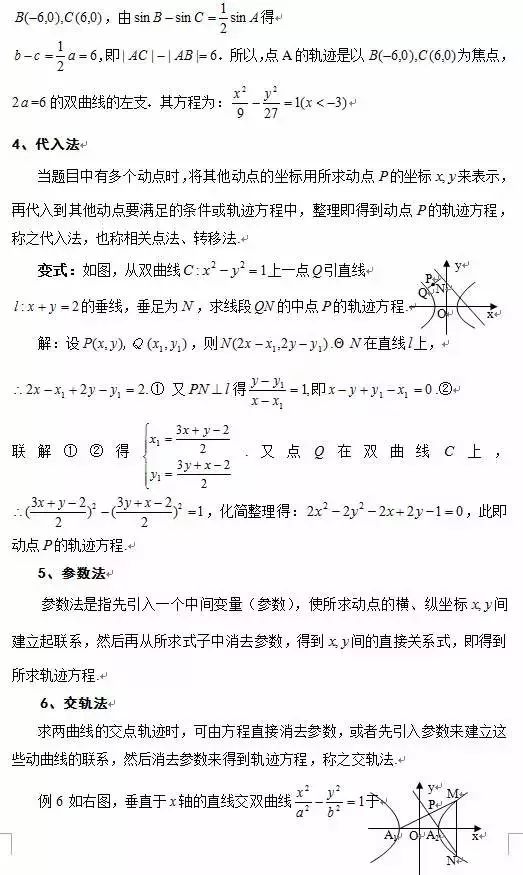 B(−6,0),C(6,0)，由 sin B − sin C = 1/2 sin A 得
b − c = 1/2 a = 6,即 | AC | − | AB |= 6．所以,点 A 的轨迹是以 B(−6,0),C(6,0)为焦点，
2 a =6 的双曲线的左支．其方程为：x²/9 − y²/27 = 1(x < −3)
4、代入法
当题目中有多个动点时,将其他动点的坐标用所求动点 P 的坐标 x, y 来表示，
再代入到其他动点要满足的条件或轨迹方程中，整理即得到动点 P 的轨迹方程，
称之代入法，也称相关点法、转移法.
变式：如图，从双曲线 C : x² − y² = 1 上一点 Q 引直线
l : x + y = 2 的垂线，垂足为 N，求线段 QN 的中点 P 的轨迹方程.
P Q N y O x
解：设 P(x, y), Q (x₁, y₁)，则 N(2x − x₁,2y − y₁) .Θ N 在直线 l 上，
∴ 2x − x₁ + 2y − y₁ = 2.① 又 PN ⊥ l 得 (y − y₁)/(x − x₁) = 1,即 x − y + y₁ − x₁ = 0 .②
联解①②得 { x₁ = (3x + y − 2)/2 y₁ = (3y + x − 2)/2 . 又点 Q 在双曲线 C 上，
∴ ((3x + y − 2)/2)² − ((3y + x − 2)/2)² = 1，化简整理得：2x² − 2y² − 2x + 2y − 1 = 0，此即
动点 P 的轨迹方程.
5、参数法
参数法是指先引入一个中间变量（参数），使所求动点的横、纵坐标 x, y 间
建立起联系，然后再从所求式子中消去参数，得到 x, y 间的直接关系式，即得到
所求轨迹方程.
6、交轨法
求两曲线的交点轨迹时，可由方程直接消去参数，或者先引入参数来建立这
些动曲线的联系，然后消去参数来得到轨迹方程，称之交轨法.
例 6 如右图，垂直于 x 轴的直线交双曲线 x²/a² − y²/b² = 1 于
y M P A₁ O A₂ x N